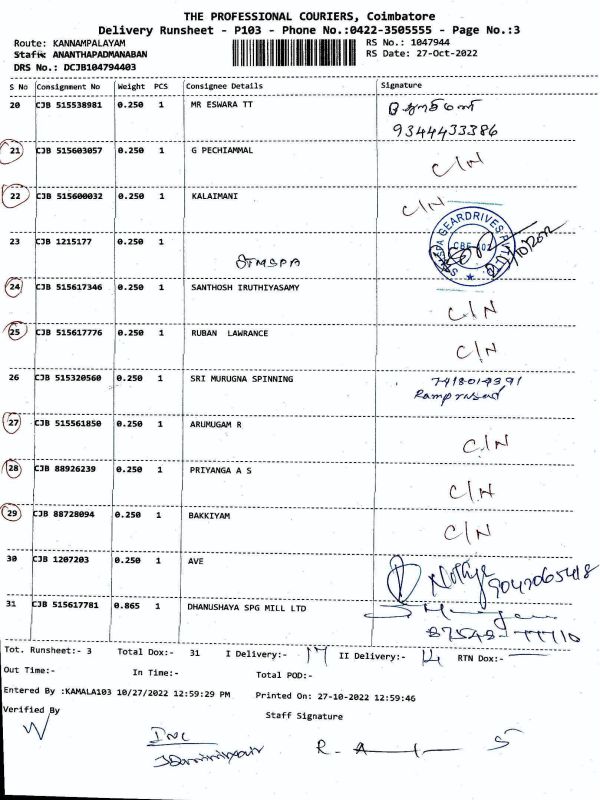 THE PROFESSIONAL COURIERS, Coimbatore
Delivery Runsheet - P103 - Phone No.:0422-3505555 - Page No.:3
Route: KANNAMPALAYAM
RS No.: 1047944
Staff: ANANTHAPADMANABAN
RS Date: 27-Oct-2022
DRS No.: DCJB104794403
S No Consignment No Weight PCS Consignee Details Signature
20 CJB 515538981 0.250 1 MR ESWARA TT
9344433386
21 CJB 515603057 0.250 1 G PECHIAMMAL C/N
22 CJB 515600032 0.250 1 KALAIMANI C/N
23 CJB 1215177 0.250 1
GEARDRIVES
24 CJB 515617346 0.250 1 SANTHOSH IRUTHIYASAMY C/N
25 CJB 515617776 0.250 1 RUBAN LAWRANCE C/N
26 CJB 515320560 0.250 1 SRI MURUGNA SPINNING
Ramprasad
27 CJB 515561850 0.250 1 ARUMUGAM R C/N
28 CJB 88926239 0.250 1 PRIYANGA A S C/N
29 CJB 88728094 0.250 1 BAKKIYAM C/N
30 CJB 1207203 0.250 1 AVE
31 CJB 515617781 0.865 1 DHANUSHAYA SPG MILL LTD
Tot. Runsheet:- 3 Total Dox:- 31 I Delivery:- 17 II Delivery:- 14 RTN Dox:-
Out Time:- In Time:- Total POD:-
Entered By :KAMALA103 10/27/2022 12:59:29 PM Printed On: 27-10-2022 12:59:46
Verified By Staff Signature